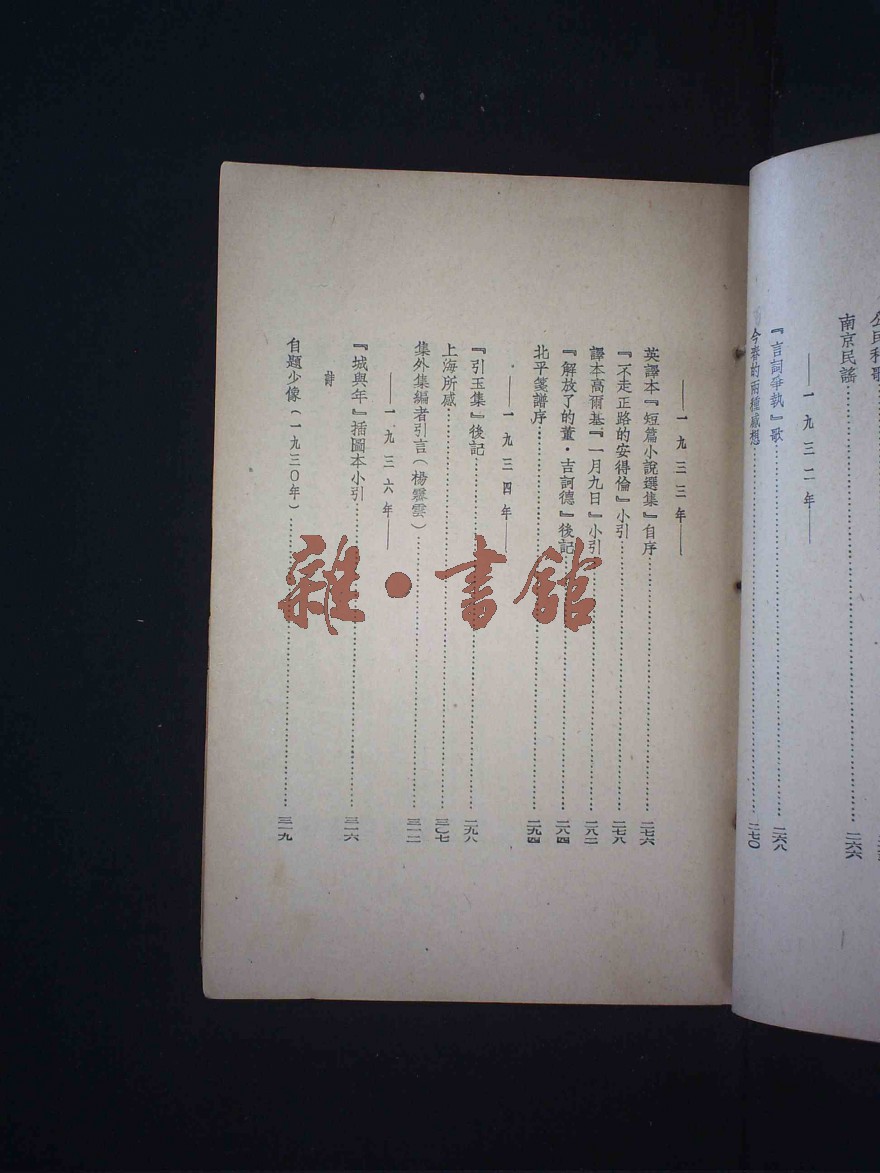 南京民謠……二六六
——一九三二年——
『言詞爭執』歌……二六八
今春的兩種感想……二七〇
——一九三三年——
英譯本『短篇小說選集』自序……二七六
『不走正路的安得倫』小引……二七八
譯本高爾基『一月九日』小引……二八二
『解放了的董·吉訶德』後記……二八四
北平箋譜序……二九四
——一九三四年——
『引玉集』後記……二九八
上海所感……三〇七
集外集編者引言(楊霽雲)……三一二
——一九三六年——
『城與年』插圖本小引……三一六
詩
自題少像(一九三〇年)……三一九
雜·書館